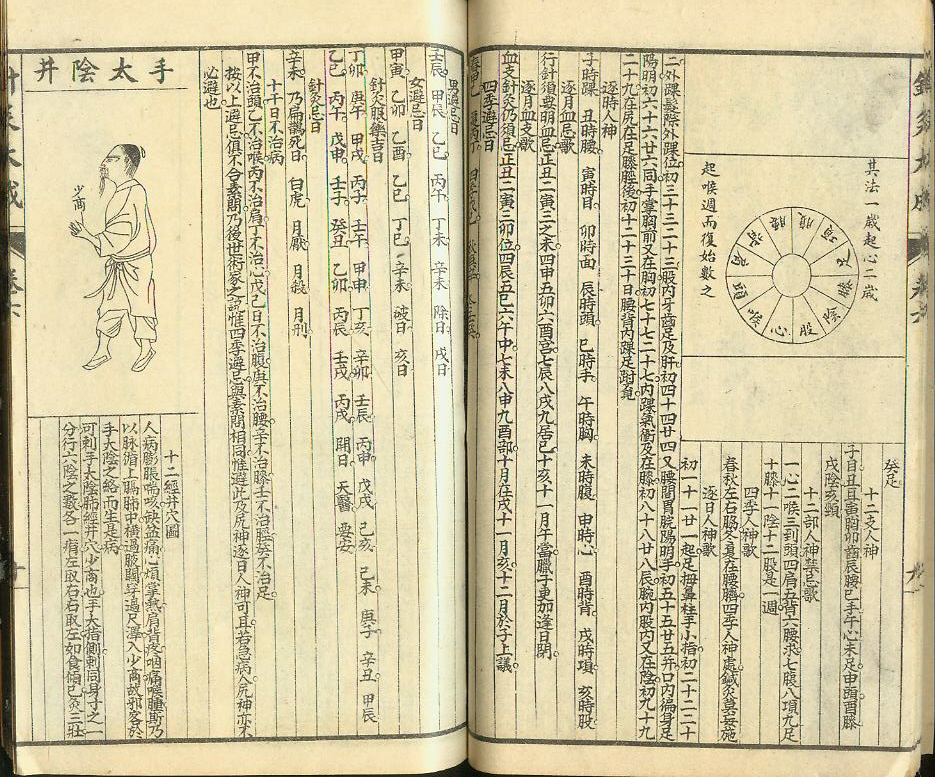 鍼灸大成
其法一歲起心二歲
起喉週而復始數之
心
喉
頭
肩
背
腰
腹
項
足
膝
陰
股
癸足
十二支人神
子目丑耳寅胸卯齒辰腰巳手午心未足申頭酉膝
戌陰亥頸
十二部人神禁忌歌
一心二喉三到頭四肩五背六腰求七腹八項九足
十膝十一陰十二股是一週
四季人神歌
春秋左右脇冬夏在腰臍四季人神處鍼灸莫妄施
逐日人神歌
初一十一廿一起足拇鼻柱手小指初二十二二十
二外踝髮際外踝位初三十三二十三股內牙齒足及肝初四十四廿四又腰間胃脘陽明手初五十五廿五并口內徧身足
陽明初六十六廿六同手掌胸前又在胸初七十七二十七內踝氣衝及在膝初八十八廿八辰腕內股內又在陰初九十九
二十九在尻在足膝脛後初十二十三十日腰背內踝足跗覓
逐時人神
子時踝 丑時腰 寅時目 卯時面 辰時頭 巳時手 午時胸 未時腹 申時心 酉時背 戌時項 亥時股
逐月血忌歌
行針須要明血忌正丑二寅三之未四申五卯六酉宮七辰八戌九居巳十亥十一月午當臘子更加逢日閉
逐月血支歌
血支針灸仍須忌正丑二寅三卯位四辰五巳六午中七未八申九酉部十月在戌十一月亥十二月於子上議
四季避忌日
男避忌日
壬辰 甲辰 乙巳 丙午 丁未 辛未 除日 戌日
女避忌日
甲寅 乙卯 乙酉 乙巳 丁巳 辛未 破日 亥日
針灸服藥吉日
丁卯 庚午 甲戌 丙子 壬午 甲申 丁亥 辛卯 壬辰 丙申 戊戌 己亥 己未 庚子 辛丑 甲辰
乙巳 丙午 戊申 壬子 癸丑 乙卯 丙辰 壬戌 丙戌 開日 天醫 要安
針灸忌日
辛未 乃扁鵲死日 白虎 月厭 月殺 月刑
十干日不治病
甲不治頭乙不治喉丙不治肩丁不治心戊己日不治腹庚不治腰辛不治膝壬不治脛癸不治足
按以上避忌俱不合素問乃後世術家之說惟四季避忌與素問相同惟避此及尻神逐日人神可耳若急病人尻神亦不
必避也
手太陰井
少商
十二經井穴圖
人病膨脹喘咳缺盆痛心煩掌熱肩背疼咽痛喉腫斯乃
以脉循上膈肺中橫過腋關穿過尺澤入少商故邪客於
手太陰之絡而生是病
可刺手太陰肺經井穴少商也手大指側刺同身寸之一
分行六陰之數各一痏左取右右取左如食頃已灸三壯